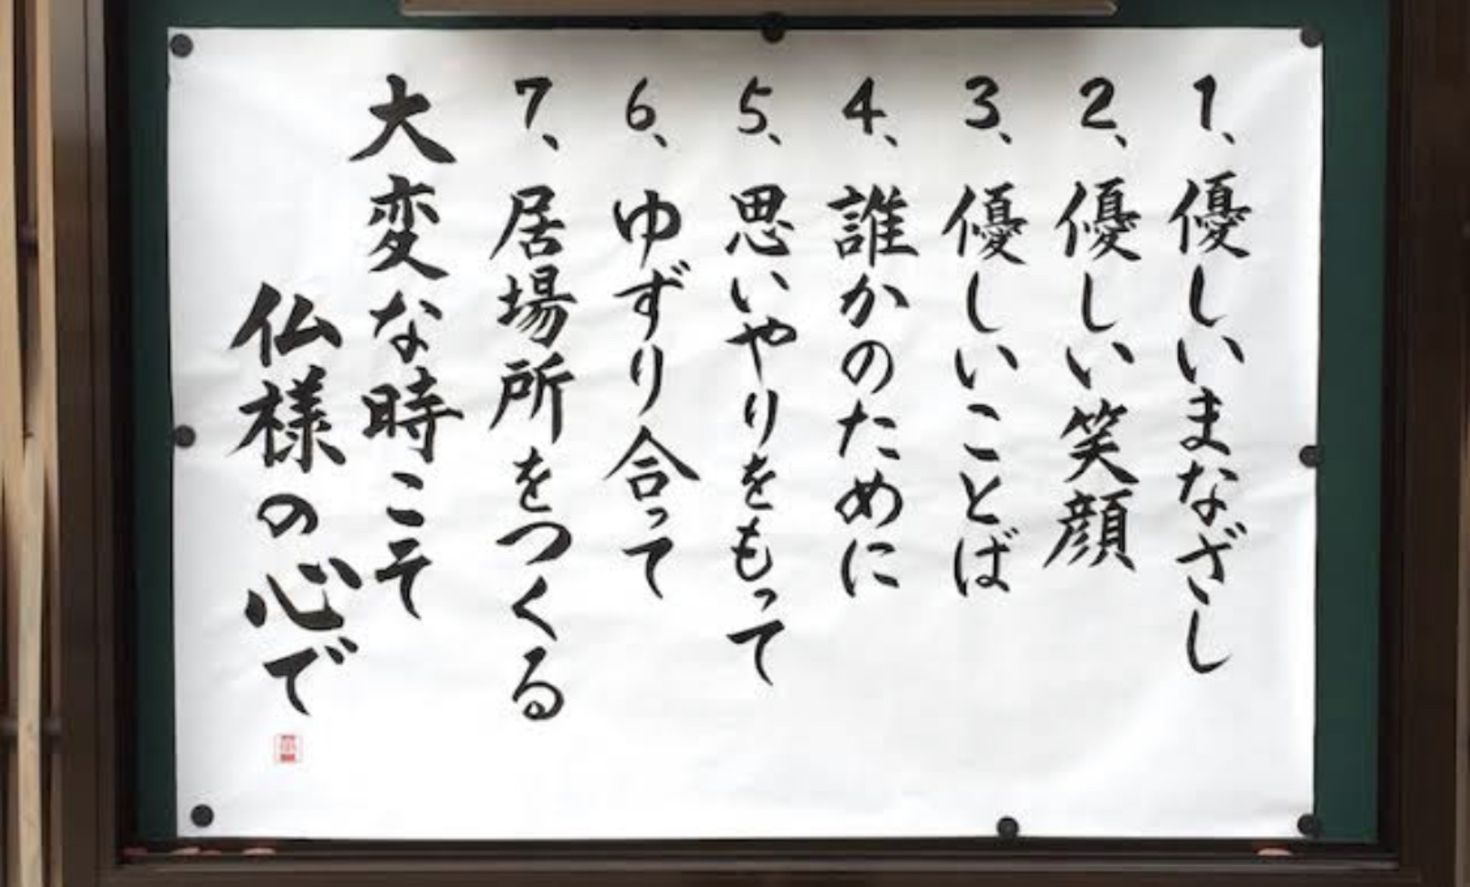 1、優しいまなざし
2、優しい笑顔
3、優しいことば
4、誰かのために
5、思いやりをもって
6、ゆずり合って
7、居場所をつくる
大変な時こそ
仏様の心で